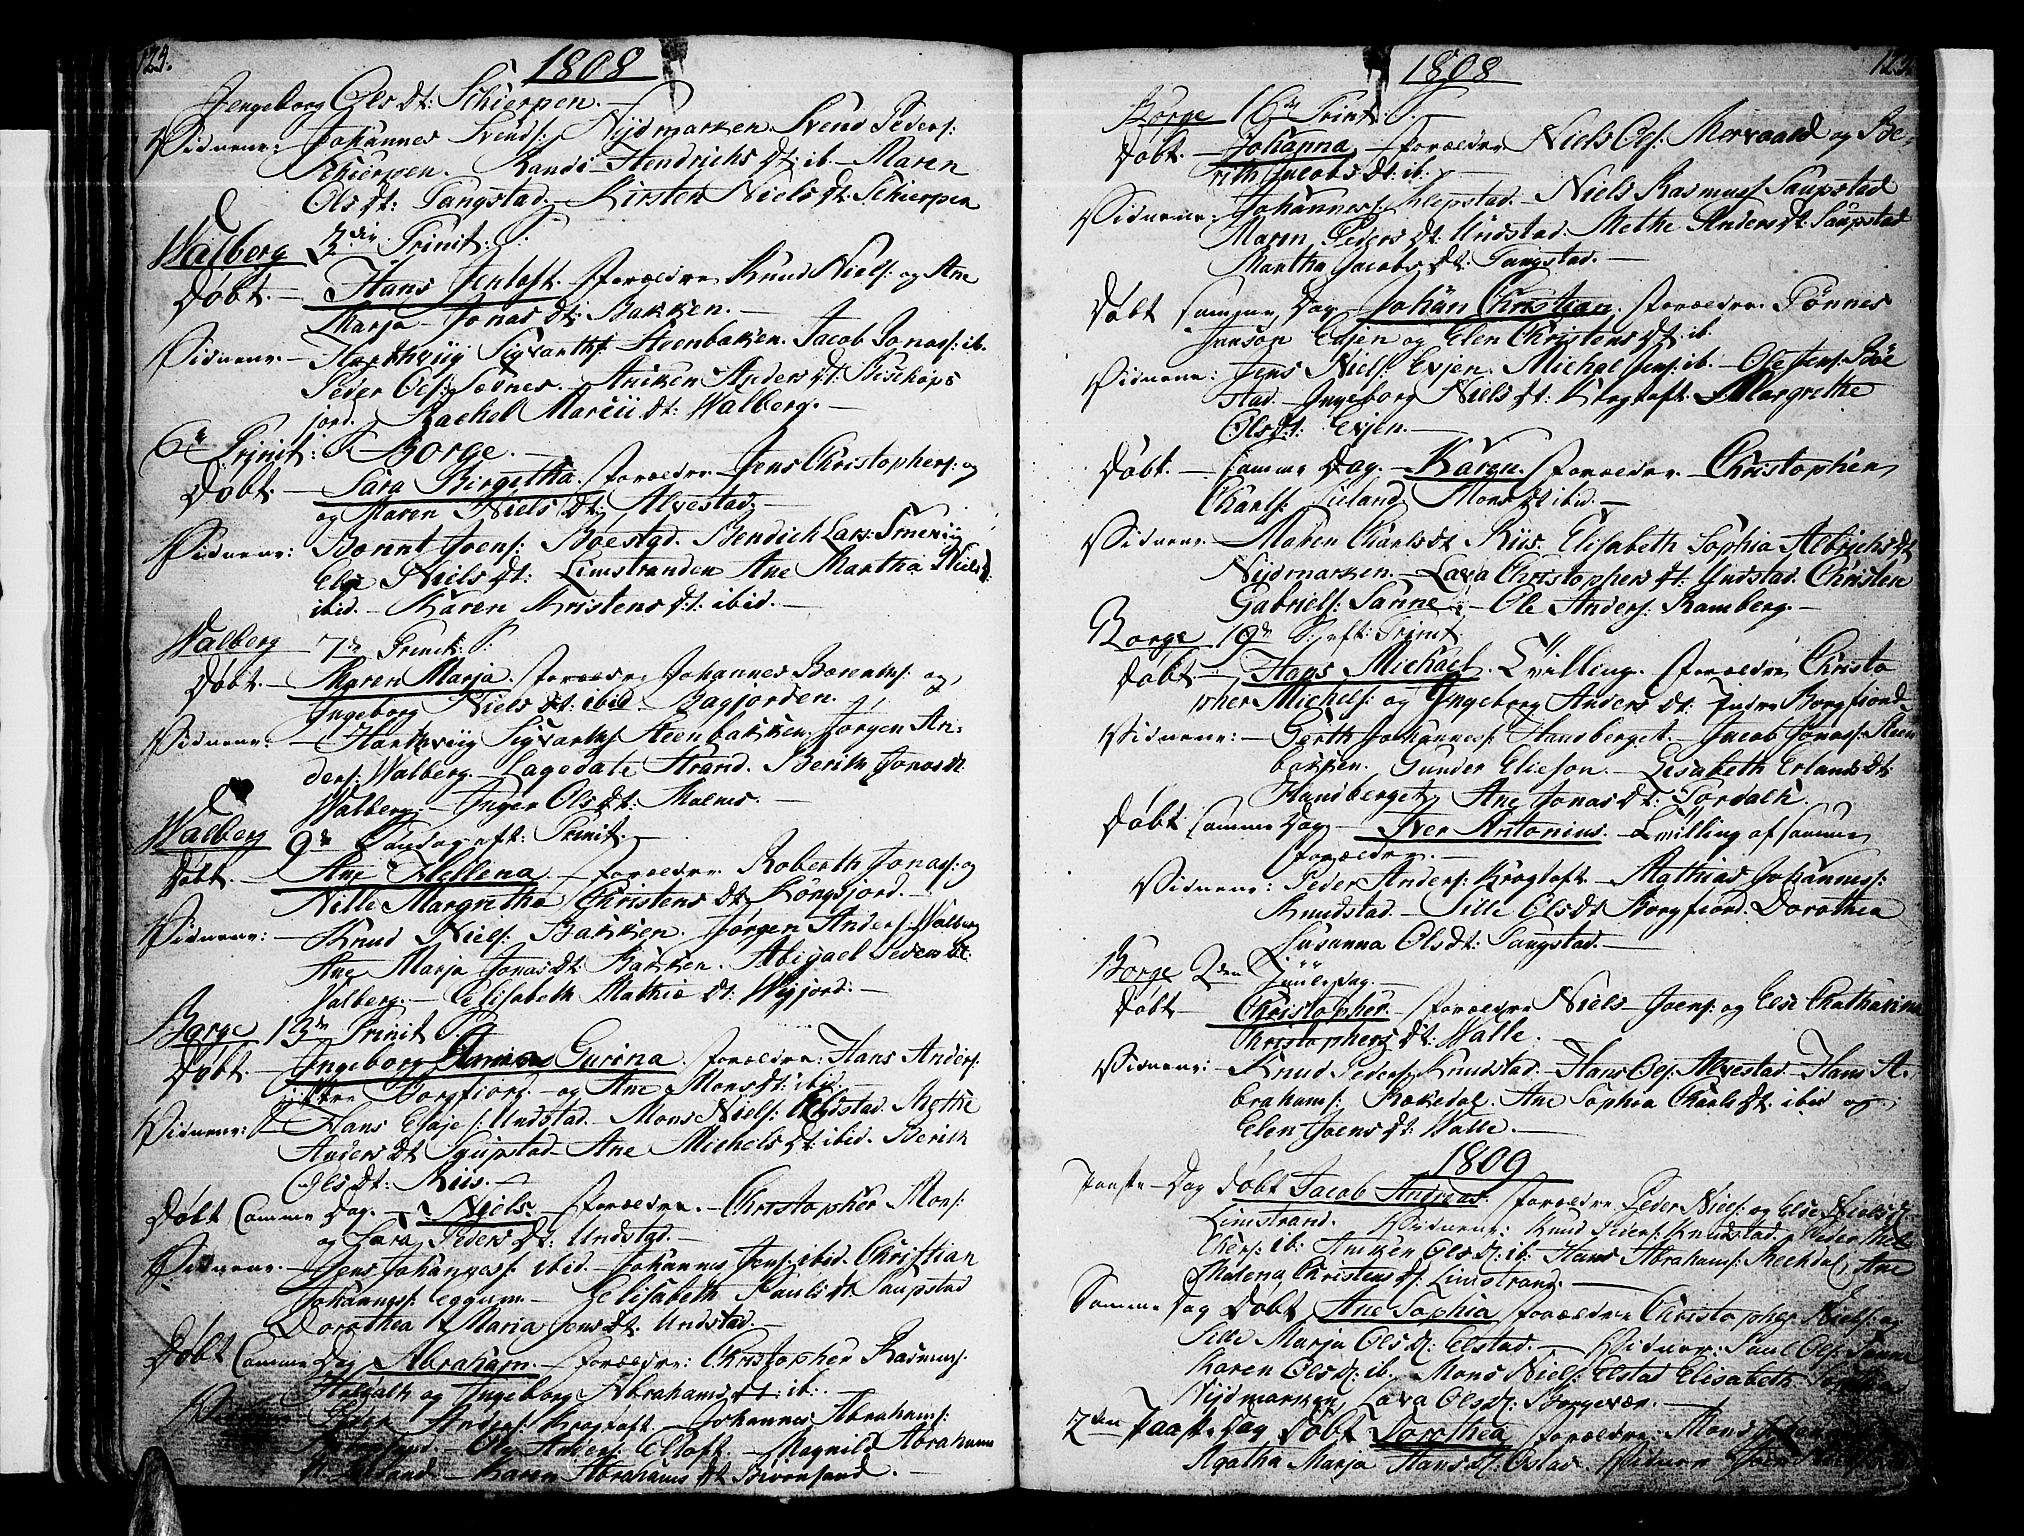 124.
1808
Jengeborg Ols dt: Schierpen. —
Vidnene: Johannes Svends: Nÿdmarken. Svend Peders:
Schierpen. Randi Hendrichs dt: ib. — Maren
Ols dt: Tangstad. — Kirsten Niels dt: Schierpen
Walberg 3die Trinit: S:
Døbt. — Hans Jenloft. forældre Knud Niels: og Ane
Marja Jonas dt: Bakken. —
Vidnene. — Harthvig Sigvarths: Steenbakken. Jacob Jonas: ib.
Peder Ols: Sævnes. — Aniken Anders dt: Biskops
jord. Rachel Marcii dt: Walberg. —
6te Trinit: S. Borge. —
Døbt. — Sara Birgitha. forældre Jens Christophers: og
og Maren Niels dt: Alvestad
Vidnene: Bonnt Joens: Bøestad. Bendich Lars: Smeviig
Else Niels dt: Limstranden Ane Martha Niels dt:
ibid. — Karen Kristens dt: ibid. —
Walberg — 7de Trinit: S:
Døbt. — Maren Marja. forældre Johannes Barenths: og
Ingeborg Niels dt: ibid Bagjorden.
Vidnene: — Harthvig Sigvarths: Steenbakken. Jørgen An-
ders: Walberg. — Lagedate Strand. Berith Jonas dt
Walberg. — Inger Ols dt: Malnes. —
Walberg 9de Søndag eft: Trinit. —
Døbt. — Ane Hellena — forældre Roberth Jonas: og
Nille Margretha Christens dt: Kongsjord. —
Vidnene: — Knud Niels: Bakken. Jørgen Anders: Walberg
Ane Marja Jonas dt: Bakken. Abigael Peders dt:
Walberg. — Elisabeth Mathiæ dt: Wigjord. —
Borge 13de Trinit S.
Døbt — Ingeborg Gurina. forældre: Hans Anders:
Borgfiord. — og Ane Mons dt: ibid —
Vidnene: Hans Esaje s: Undstad. Mons Niels: Undstad. Methe
Anders dt Saupstad — Ane Michels dt: ibid. Berith
Ols dt: Riis. —
Døbt Samme Dag. — Niels — forældre. — Christopher Mons:
og Sara Peders dt: Undstad. —
Vidnene. — Jens Johannes: ibid. — Johannes Jens: ibid. Christian
Johannes: Eggum. — Elisabeth Pauls dt Saupstad
Dorothea Maria Jens dt: Undstad. —
Døbt Samme Dag Abraham. — forældre: Christopher Rasmus:
og Ingeborg Abrahams dt: ib: —
Vidnene Peder Anders: Krogtoft — Johannes Abrahams:
— Ole Anders: Eltoft. — Magnild Abrahams
dt — Karen Abrahams dt:
125
1808
Borge 16de Trinit: S. —
Døbt. — Johanna — forældre Niels Ols: Mervaald og Be-
rith Jacobs dt: ib. —
Vidnene: Johannes: Klepstad. — Niels Rasmus: Saupstad
Maren Peders dt: Undstad. Methe Anders dt: Saupstad
Martha Jacobs dt: Tangstad. —
Døbt samme Dag — Johan Christian. forældre Tønnes
Jenson Evjen og Elen Christens dt ib.
Vidnene: Jens Niels: Evjen. Michel Jens: ib. — Ole Jens: Bøe
stad. Ingeborg Niels dt: Krogtoft. Margrethe
Ols dt: Evjen. —
Døbt. — Samme Dag. — Karen. forældre. Christopher
Charls: Mons dt ibid. —
Vidnene. Maren Charls dt Riis. Elisabeth Sophia Albrichs dt
Nÿdmarken. — Lava Christophers dt: Undstad. Christen
Gabriels: Sanne. — Ole Anders: Ramberg. —
Borge 19de S: eft: Trinit
Døbt — Hans Michael. Tvilling. forældre Christo
pher Michels: og Ingeborg Anders dt: Indre Borgfiord.
Vidnene: — Gerth Johannes: Handberget. — Jacob Jonas: Steen
bakken. Gunder Elieson. — Lisabeth Erlands dt:
Handberget. Ane Jonas dt: Tordalk.
Døbt samme Dag — Iver Antonius. — Tvilling af samme
forældre. —
Vidnene: Peder Anders: Krogtoft — Mathias Johannes:
Knudstad. — Sille Ols dt Borgfiord. Dorothea
Susanna Ols dt: Tangstad. —
Borge 2den Juule Dag. —
Døbt — Christopher. — forældre Niels Joens: og Else Chatharina
Christophers dt: Walle. —
Vidnene: — Knud Peders: Knudstad. — Hans Ols: Alvestad — Hans A-
brahams: Rækedal. Ane Sophia Charls dt: ibid og
Elen Joens dt: Walle. —
1809
Paaske-Dag Døbt Jacob Andreas. forældre Peder Niels: og Else Niels dt.
Limstrand. Vidnene: Knud Peders: Knudstad. Peder
ib: Aniken Ols dt: ib: Hans Abrahams: Rechdal, Ane
Malena Christens dt: Limstrand. —
Samme Dag Døbt Ane Sophia forældre Christopher Niels: og
Marja Ols dt: Elstad. — Vidner: Paul Ols: Sanne
Karen Ols dt: ib. Mons Niels: Elstad Elisabeth Sophia
Nÿdmarken, Lava Ols dt: Borgevær. —
2den Paaske Dag Døbt Dorothea forældre: Mons
Agatha Marja Hans dt: Ostad. Vidner Joen